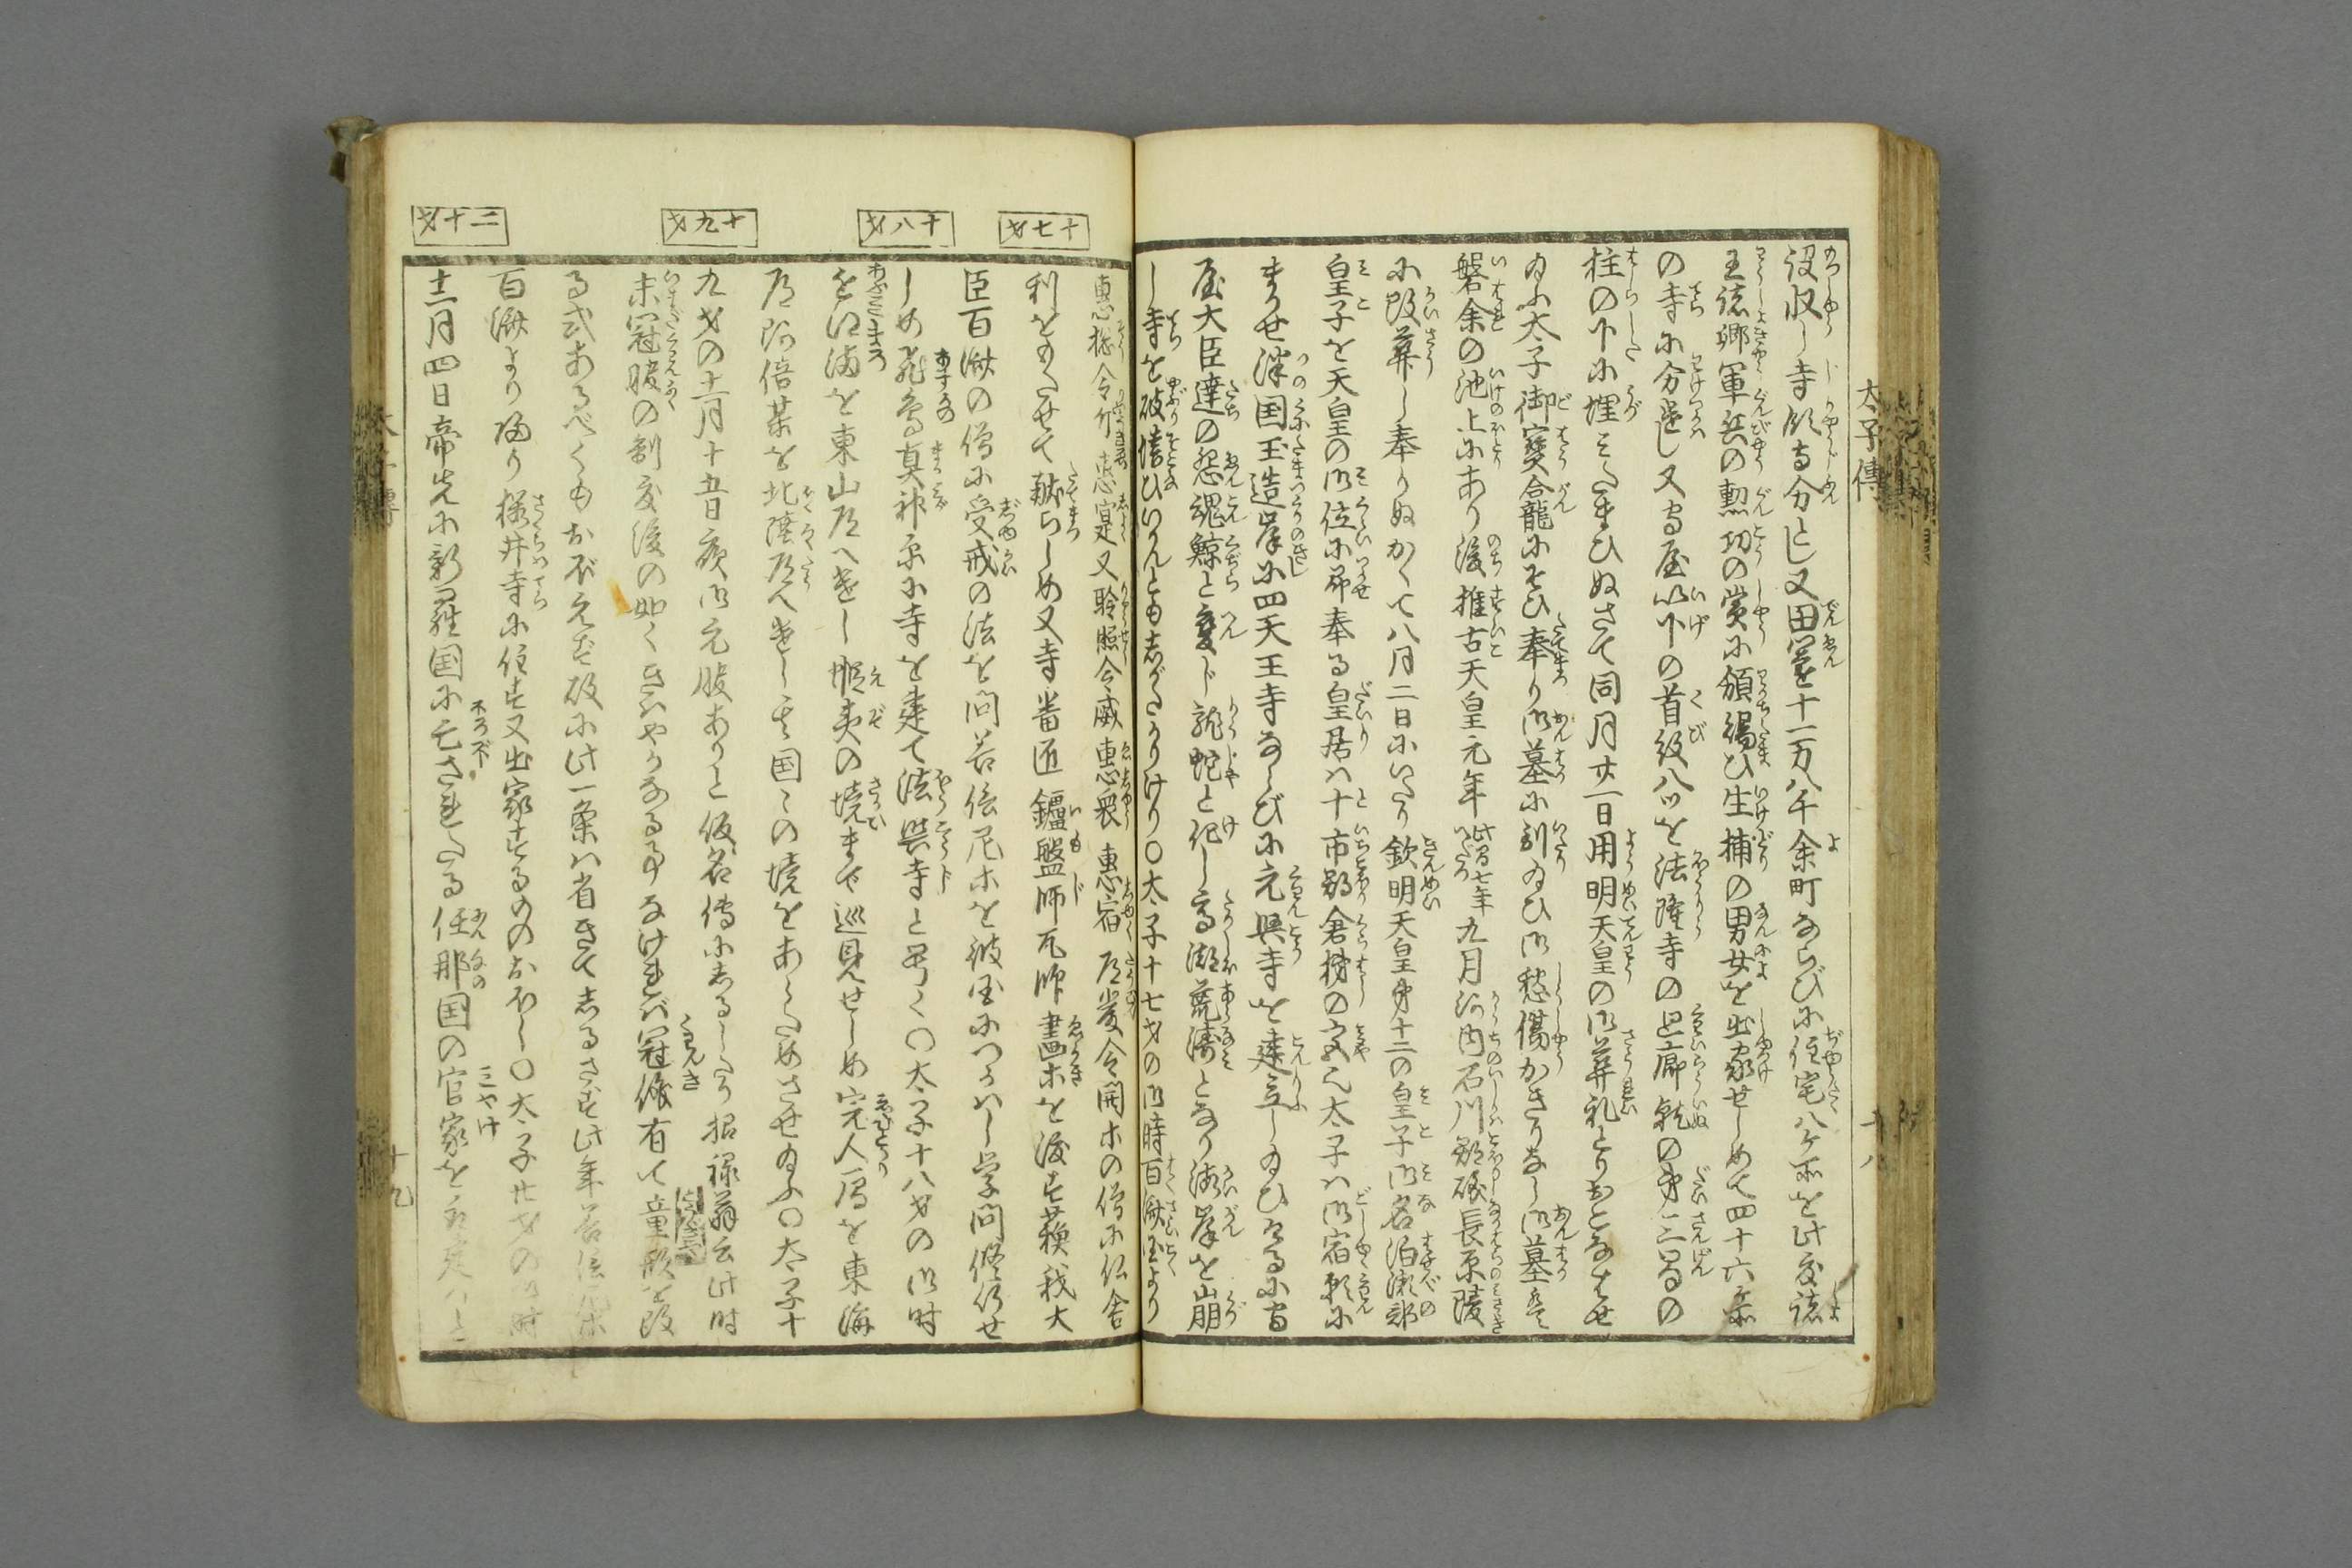 太子傳
没収し寺領寺分とし又田園十一万八千余町ならびに住宅八ケ所を此度諸
王諸卿軍兵の勲功の賞に頒賜ひ生捕の男女を出家せしめて四十六ケ所
の寺に分遣し又守屋以下の首級八ツを法隆寺の廻廊乾の第三間の
柱の下に埋ミたまひぬさて同月廿一日用明天皇の御葬礼とりおこなはせ
ゐふ太子御寶合龕にそひ奉り御墓に到ゐひ御愁傷かきりなし御墓ハ
磐余の池上にあり後推古天皇元年此間七年九月河内石川郡磯長原陵
に改葬し奉りぬかくて八月二日にいたり欽明天皇第十二の皇子御名泊瀬部
皇子を天皇の御位に即奉る皇居ハ十市郡倉梯の宮也太子ハ御宿願に
まかせ津国玉造岸に四天王寺ならびに元興寺を建立しゐひけるに守
屋大臣達の怨魂鯨と変ド龍蛇と化し高潮荒濤となり海岸を山崩
し寺を破壊ひいんとも志がたかりけり〇太子十七才の御時百済国より
十七才
恵総令斤恵寔又聆照令威恵衆恵宿道厳令開ホの僧に仏舎
利をもたせて献らしめ又寺番匠鑪盤師瓦師畫ホを渡す蘇我大
臣百済の僧に受戒の法を問善信尼ホを彼国につかハし学問修行せ
しめ飛鳥真神原に寺を建て法興寺と号く〇太子十八才の御時
十八才
近江満を東山道へ遣し蝦夷の境まで巡見せしめ宍人鴈を東海
道阿倍某を北陸道へ遣し其国々の境をあらためさせゐふ〇太子十
九才の十一月十五日夜御元服ありと仮名傳にしるしたり招禄翁云此時
十九才
未冠服の制度後の如くきハやかなる事なければ冠儀有て童形を改
る式あるべくもおぼえず故に此一条ハ省きてしるさず此年善信尼ホ
百済より帰り桜井寺に住す又出家するものおほし〇太子廿才の御時
十一月四日帝先に新羅国に亡されたる任那国の官家を
二十才
十九